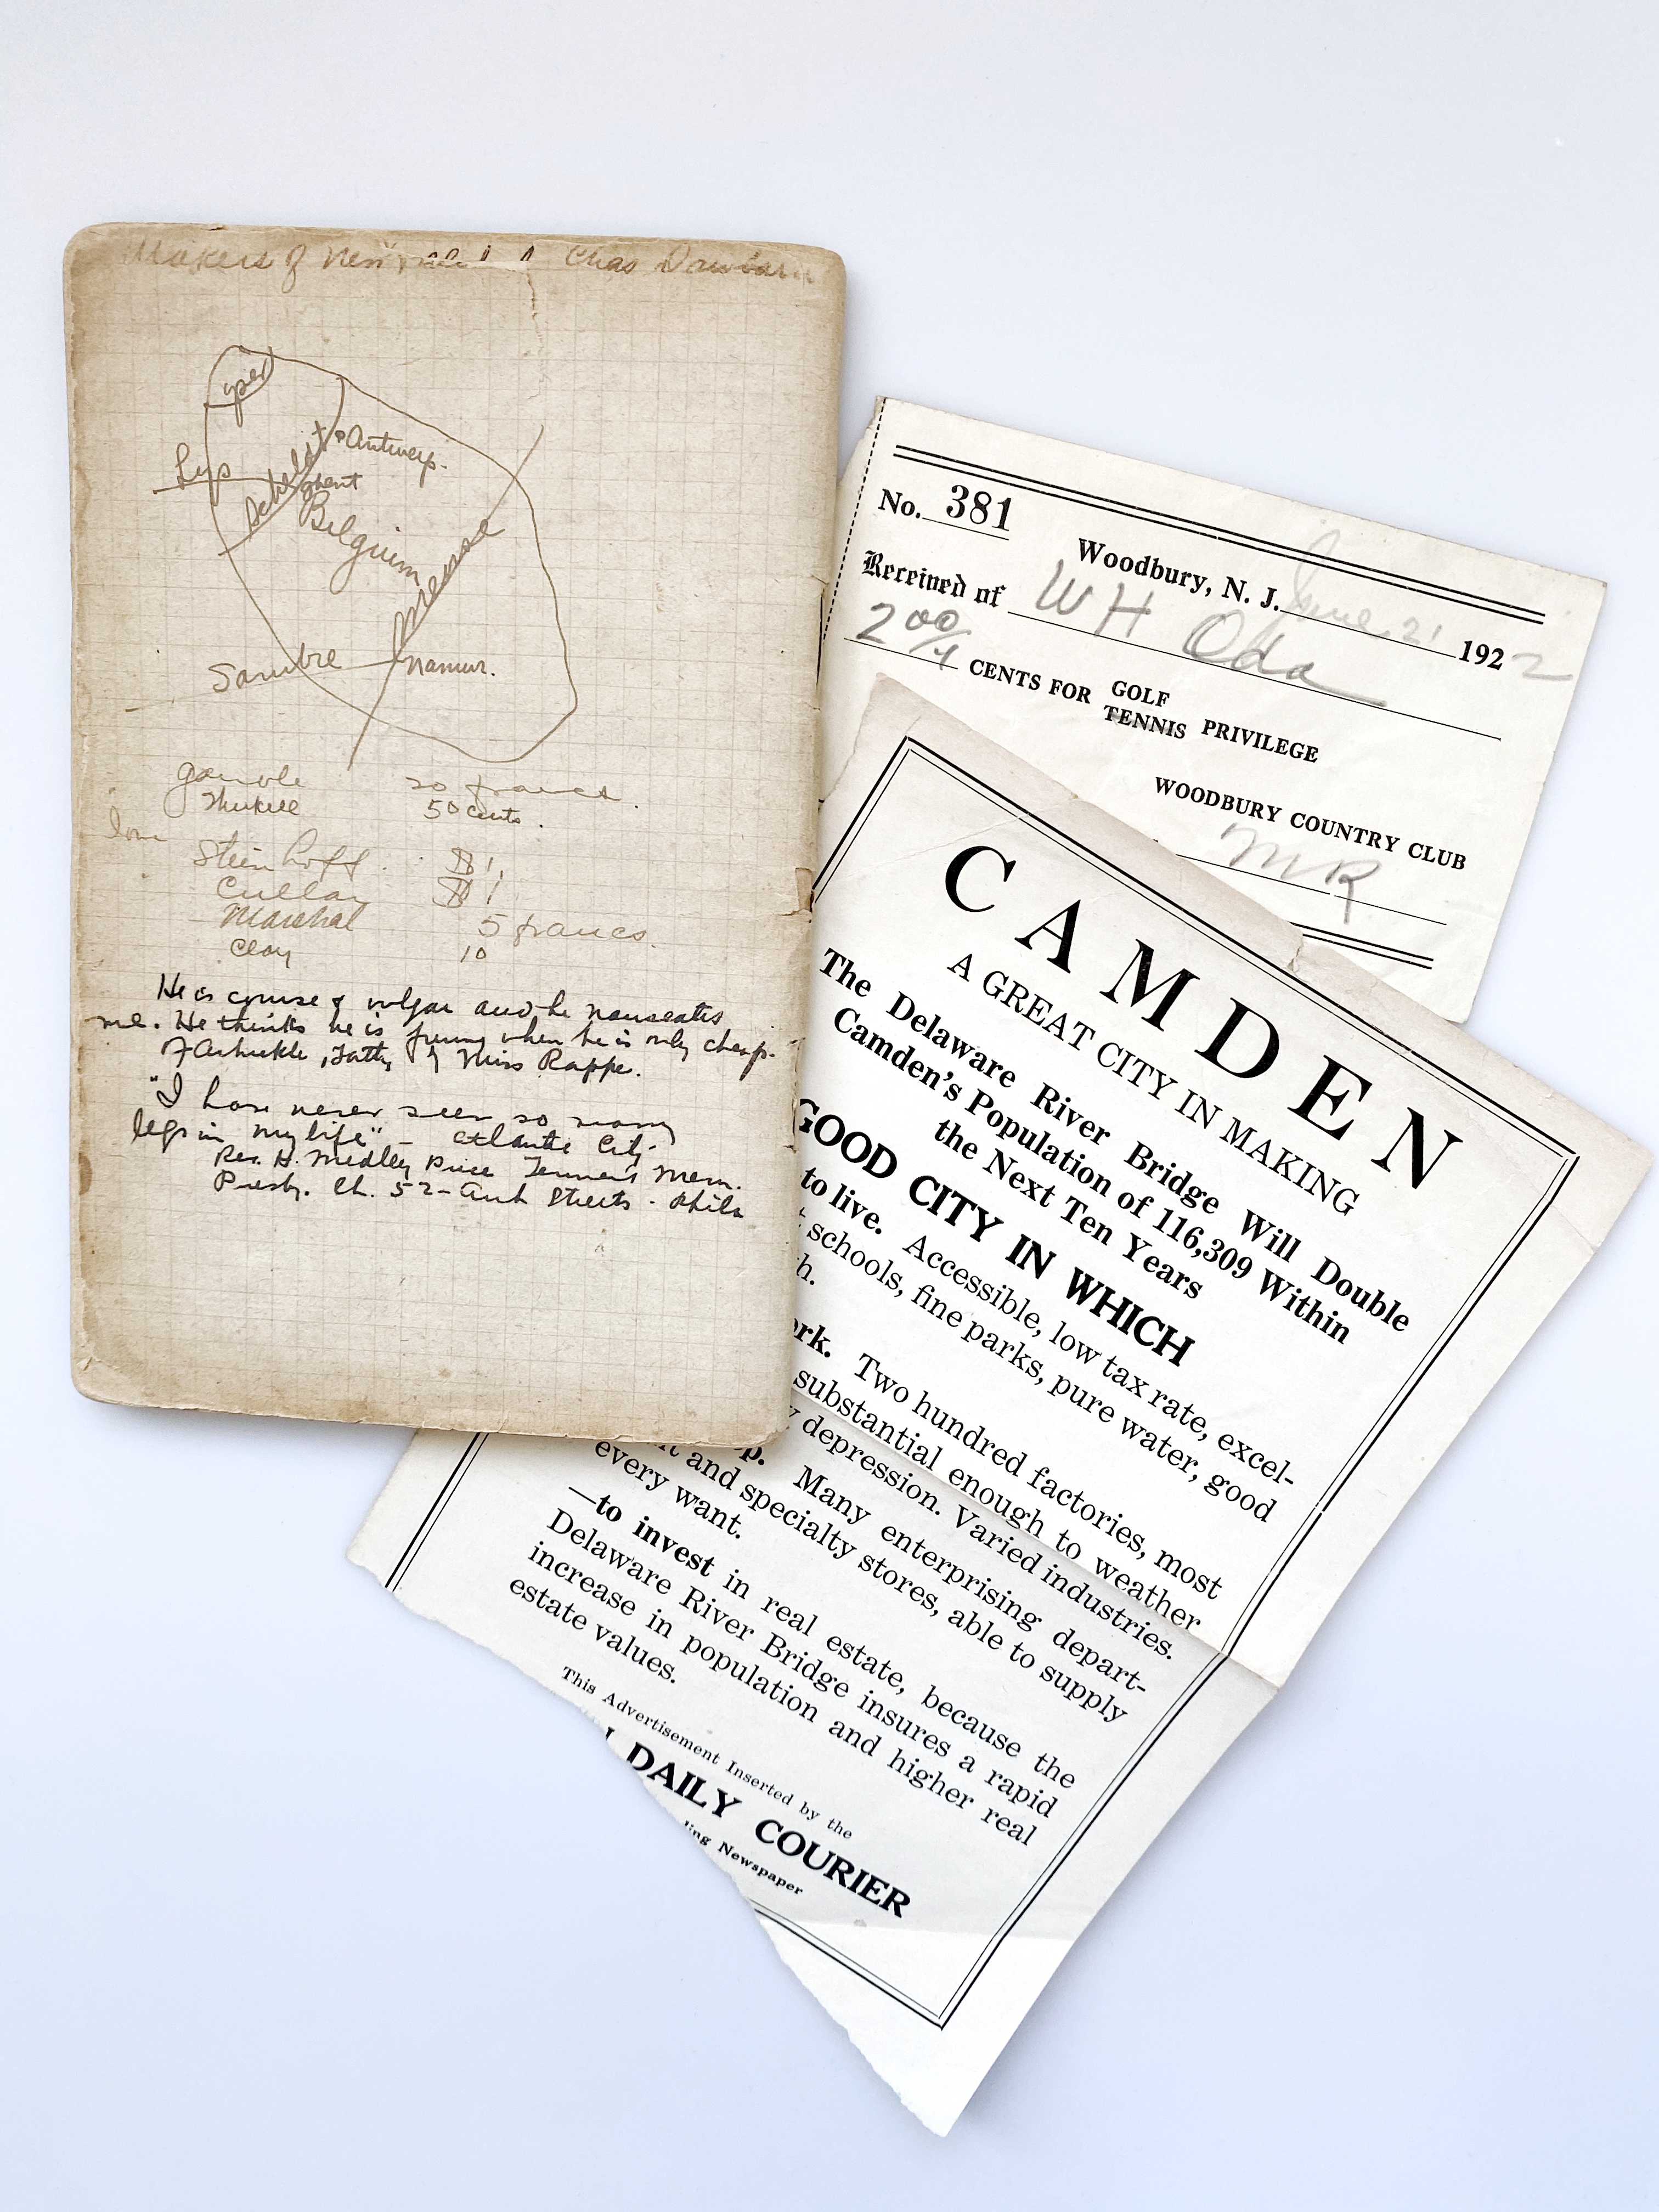 Makers of New Chas Dawbarn
Yser
Antwerp.
Lys
Scheldt
Ghent
Belgium
Meuse
Sambre
Namur.
20 francs.
50 cents.
Steinhoff $1,
Cullay $1
Marshal 5 francs.
Clay 10
He is course & vulgar and he nauseates
me. He thinks he is funny when he is only cheap.
of Arbuckle, Fatty & Miss Rappe.
"I have never seen so many
legs in my life" - Atlantic City
Rev. H. Medley Price Tennent Mem.
Presby. Ch. 52- Arch Streets - Phila
No. 381
Woodbury, N. J. June 21 1922
Received of W H Oda
2 00/ CENTS FOR GOLF TENNIS PRIVILEGE
WOODBURY COUNTRY CLUB
MR
CAMDEN
A GREAT CITY IN MAKING
The Delaware River Bridge Will Double
Camden's Population of 116,309 Within
the Next Ten Years
GOOD CITY IN WHICH
to live. Accessible, low tax rate, excel-
schools, fine parks, pure water, good
h.
ork. Two hundred factories, most
substantial enough to weather
y depression. Varied industries.
p. Many enterprising depart-
t and specialty stores, able to supply
every want.
—to invest in real estate, because the
Delaware River Bridge insures a rapid
increase in population and higher real
estate values.
This Advertisement Inserted by the
DAILY COURIER
ling Newspaper